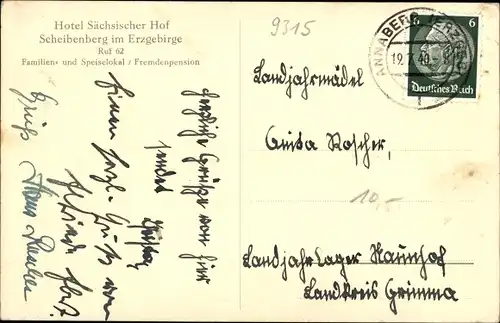 Hotel Sächsischer Hof
Scheibenberg im Erzgebirge
Ruf 62
Familien- und Speiselokal / Fremdenpension
9315
ANNABERG (ERZGEB)
19.7.40
6 6
Deutsches Reich
Landjahrmädel
Anita Roscher,
10,-
Landjahr Lager Naunhof
Landkreis Grimma
Herzliche Grüße von hier
sendet
Einen herzl. Gruß von
Gruß Hans